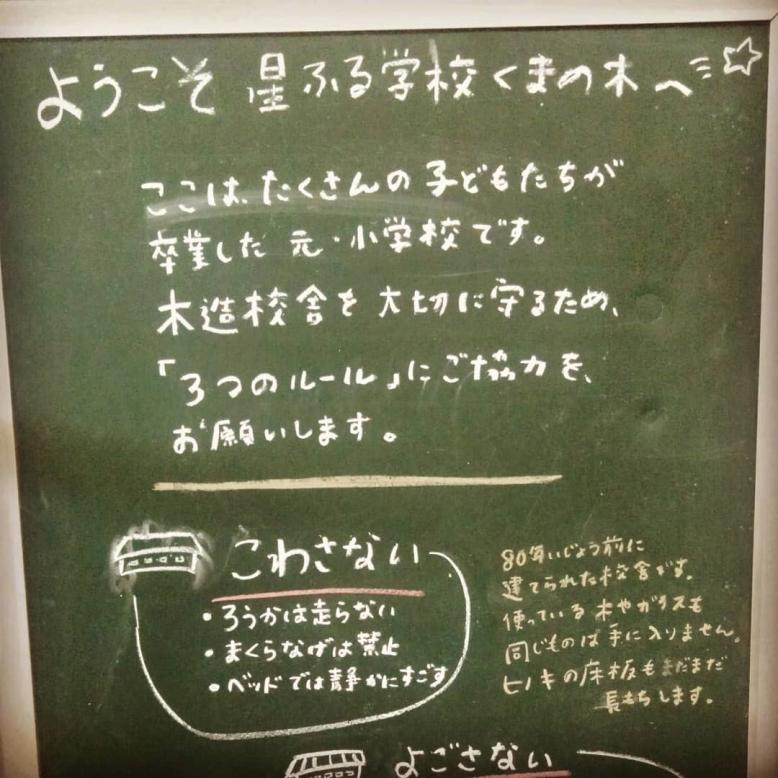 ようこそ 星ふる学校くまの木へ
ここは、たくさんの子どもたちが
卒業した 元・小学校です。
木造校舎を 大切に守るため、
「3つのルール」にご協力を、
お願いします。
こわさない
・ろうかは走らない
・まくらなげは禁止
・ベッドでは静かにすごす
80年いじょう前に
建てられた校舎です。
使っている木やガラスも
同じものは手に入りません。
ヒノキの床板もまだまだ
長もちします。
よごさない